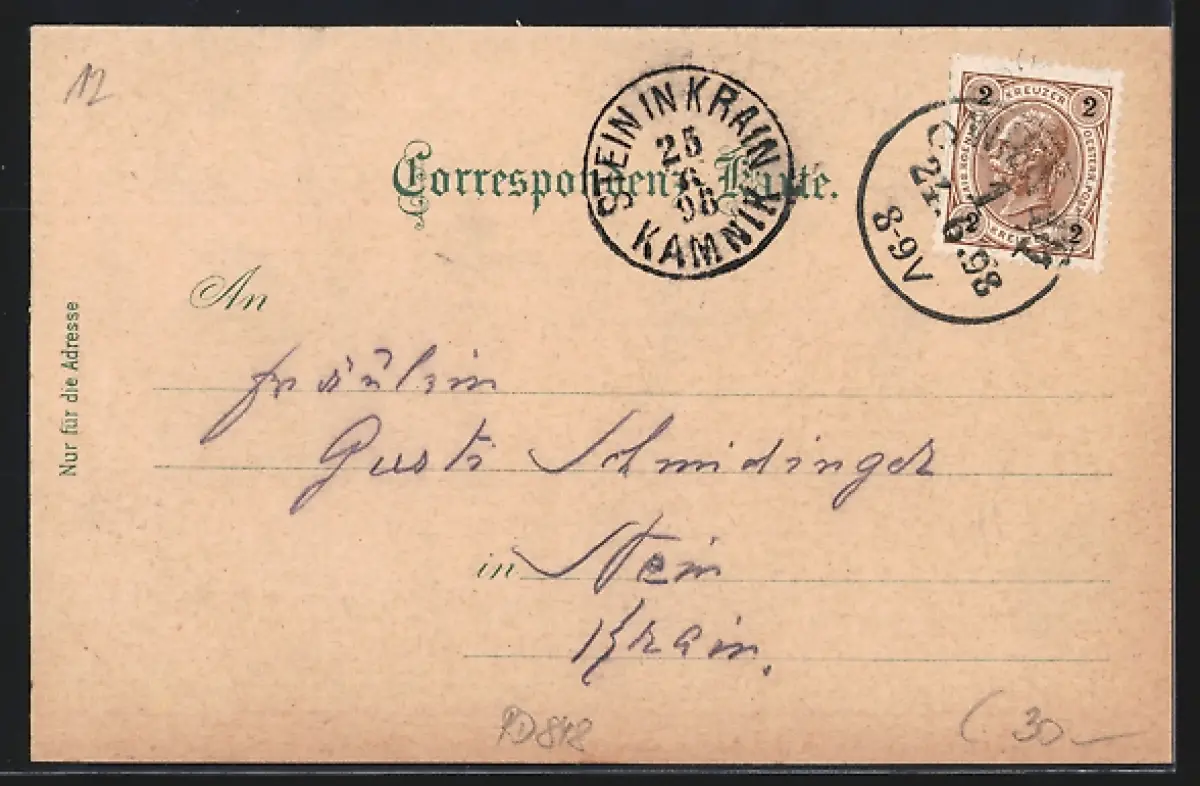 12
STEIN IN KRAIN
25
6
98
KAMNIK
2 KREUZER 2
2 2
24.6.98
8-9V
Correspondenz-Karte.
Nur für die Adresse
An
Fräulein
Gusti Schmidinger
in Stein
Krain.
RD848
30